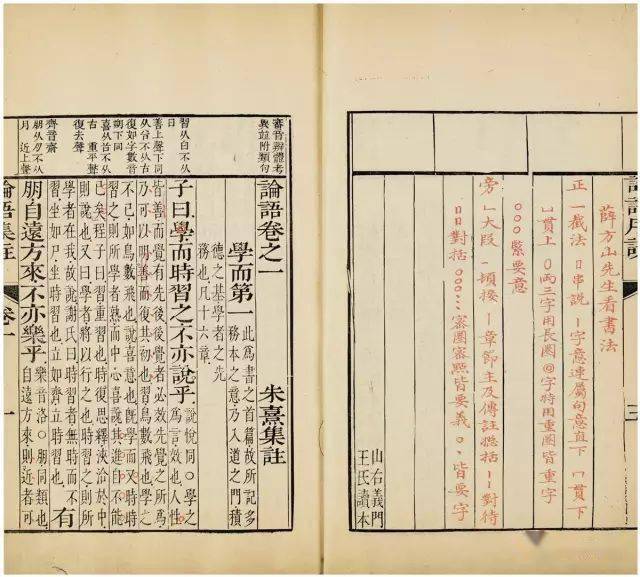 薛方山先生看書法
正一截法 串説 字意連屬向意直下 貫下
貫上 兩三字用長圈◎字特用重圈皆重字
○○○緊要意
旁 大段 頓接 章節主及傳註總括 對待
對括○○○ 密圈密點皆要義 ○、皆要字
山右義門
王氏讀本
審音辨體考
異註附類句
論語卷之一
朱熹集註
學而第一 此爲書之首篇故所記多
務本之意乃入道之門積
德之基學者之先
務也凡十六章
習从白不从
日
善上聲下同
从台不从古
復如字數音
朔下同
喜从㫖不从
右 重平聲
復去聲
子曰學而時習之不亦說乎 說悅同○學之
爲言效也人性
皆善而覺有先後後覺者必效先覺之所爲
乃可以明善而復其初也習鳥數飛也學之
不已如鳥數飛也說喜意也旣學而又時時
習之則所學者熟而中心喜說其進自不能
已矣程子曰習重習也時復思繹浹洽於中
則說也又曰學者將以行之也時習之則所
學者在我故說謝氏曰時習者無時而不
習坐如尸坐時習也立如齊立時習也 有
齊音齋
朋从月不从
月 近上聲
朋自遠方來不亦樂乎 樂音洛○朋同類也
自遠方來則近者可
論語集註 卷一 一